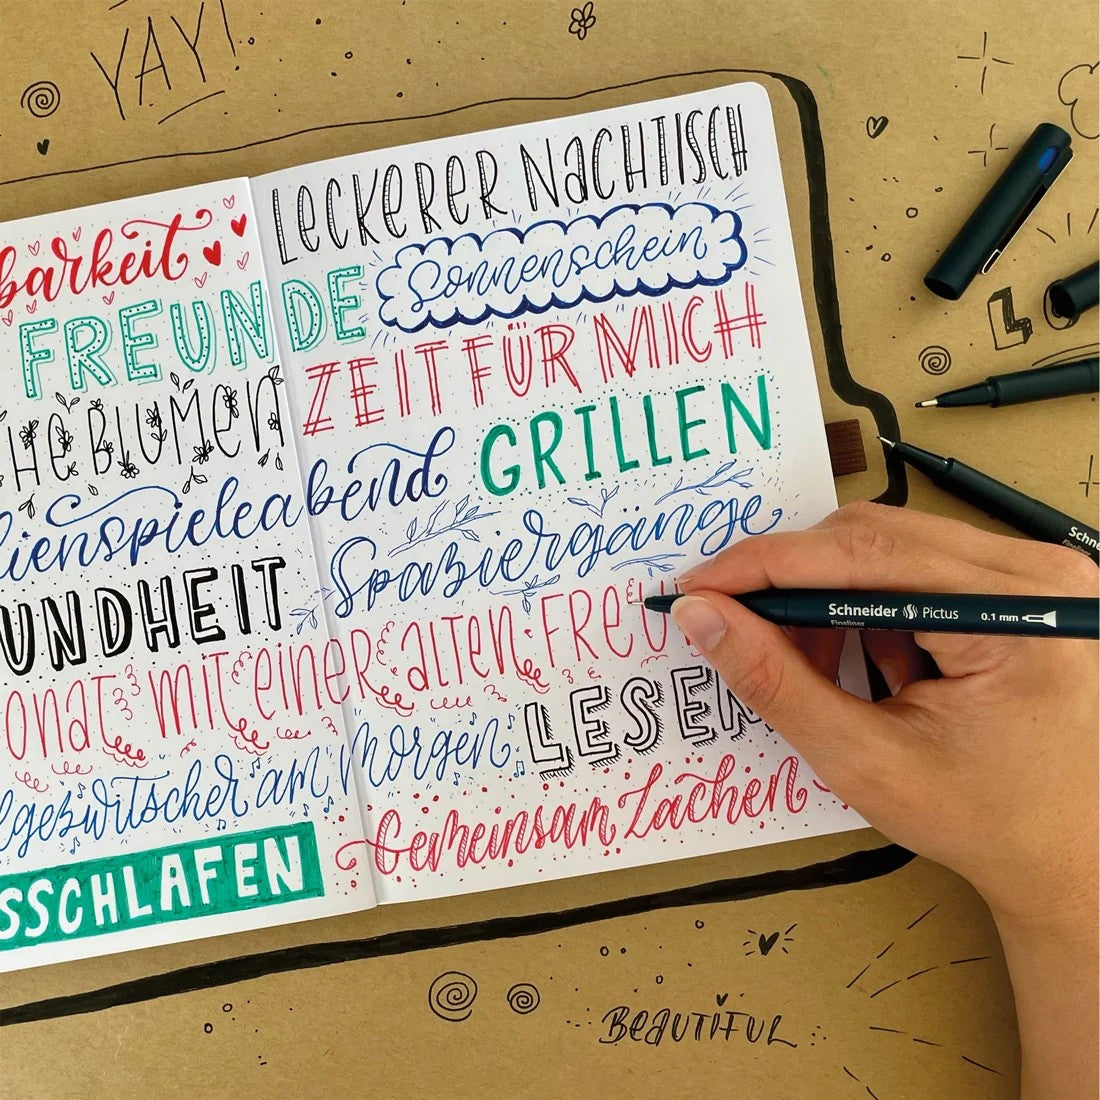 YAY!
LECKERER NACHTISCH
barkeit
Sonnenschein
FREUNDE
ZEIT FÜR MICH
HE BLUMEN
GRILLEN
ienspieleabend
Spaziergänge
UNDHEIT
onat mit einer alten FREU
LESEN
lgezwitscher am Morgen
Gemeinsam Lachen
SSCHLAFEN
Schneider Pictus 0.1 mm
Fineliner
Schne
BEAUTIFUL